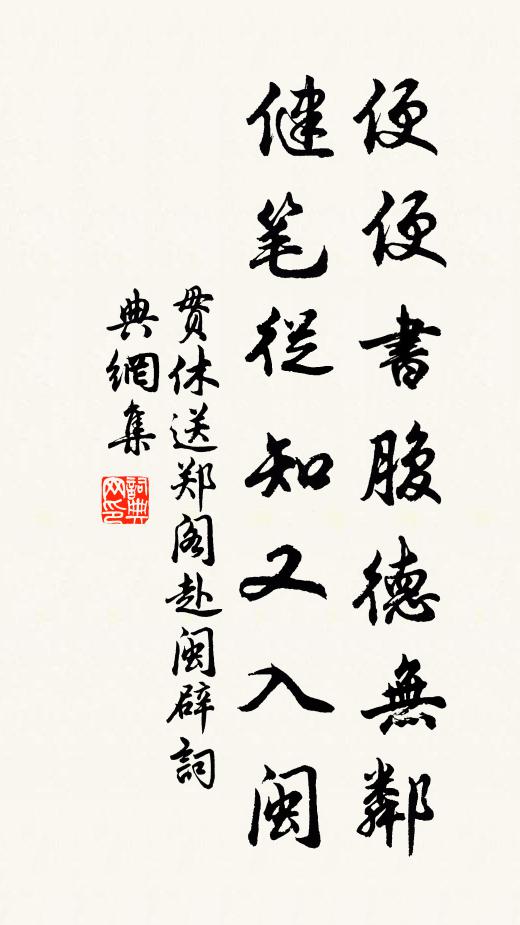 便便書腹德無鄰
健笔從知又入闽
贯休送郑阁赴闽辟詞
典網集
詞典网印